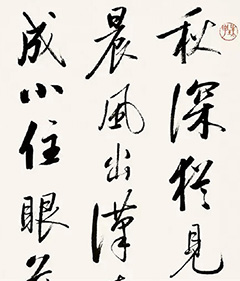 秋深犹見
晨風出漢
成小住眼